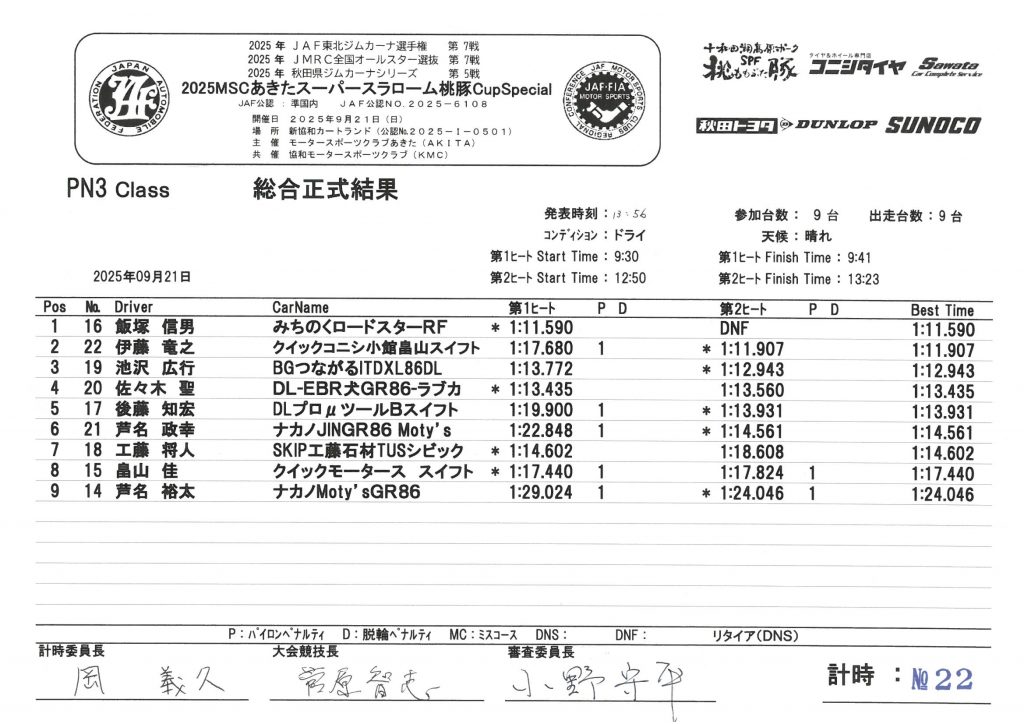 2025 年 JAF東北ジムカーナ選手権 第 7戦
2025 年 JMRC全国オールスター選抜 第 7戦
2025 年 秋田県ジムカーナシリーズ 第 5戦
2025MSCあきたスーパースラローム桃豚CupSpecial
JAF公認 : 準国内 JAF公認NO.2025-6108
開催日 2025年9月21日(日)
場 所 新協和カートランド(公認№2025-I-0501)
主 催 モータースポーツクラブあきた(AKITA)
共 催 協和モータースポーツクラブ(KMC)
JAPAN AUTOMOBILE FEDERATION
JAF
JAF MOTOR SPORTS CLUBS REGIONAL CONFERENCE
JAF·FIA
MOTOR SPORTS
十和田湖高原ポーク
SPF
桃ももぶた豚
タイヤ&ホイール専門店
コニシタイヤ
Sawata
Car Complete Service
秋田トヨタ
DUNLOP
SUNOCO
PN3 Class 総合正式結果
発表時刻 : 13:56 参加台数 : 9 台 出走台数 : 9 台
コンディション : ドライ 天候 : 晴れ
第1ヒート Start Time : 9:30 第1ヒート Finish Time : 9:41
2025年09月21日 第2ヒート Start Time : 12:50 第2ヒート Finish Time : 13:23
Pos No. Driver CarName 第1ヒート P D 第2ヒート P D Best Time
1 16 飯塚 信男 みちのくロードスターRF * 1:11.590 DNF 1:11.590
2 22 伊藤 竜之 クイックコニシ小館畠山スイフト 1:17.680 1 * 1:11.907 1:11.907
3 19 池沢 広行 BGつながるITDXL86DL 1:13.772 * 1:12.943 1:12.943
4 20 佐々木 聖 DL-EBR犬GR86-ラブカ * 1:13.435 1:13.560 1:13.435
5 17 後藤 知宏 DLプロμツールBスイフト 1:19.900 1 * 1:13.931 1:13.931
6 21 芦名 政幸 ナカノJINGR86 Moty's 1:22.848 1 * 1:14.561 1:14.561
7 18 工藤 将人 SKIP工藤石材TUSシビック * 1:14.602 1:18.608 1:14.602
8 15 畠山 佳 クイックモータース スイフト * 1:17.440 1 1:17.824 1 1:17.440
9 14 芦名 裕太 ナカノMoty'sGR86 1:29.024 1 * 1:24.046 1 1:24.046
P : パイロンペナルティ D : 脱輪ペナルティ MC : ミスコース DNS : DNF : リタイア(DNS)
計時委員長 大会競技長 審査委員長
岡 義久 菅原智志 小野守平
計時 : №22